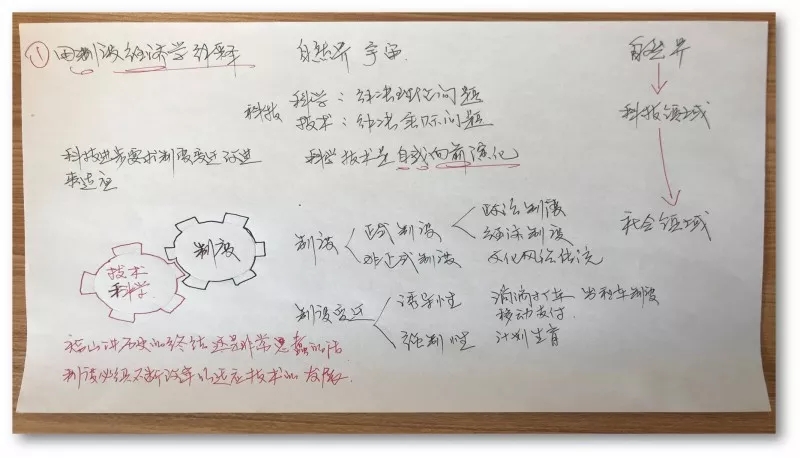 (1) 用制度经济学解释 自然界 宇宙 自然界
科技 科学：解决理论问题
技术：解决实际问题 科技领域
科技进步要求制度变迁 科学技术是自我向前演化
来适应
制度 正式制度 政治制度
经济制度
非正式制度 文化风俗传统
社会领域
制度
技术
科学
制度变迁 诱导性 滴滴打车 出租车制度
移动支付
强制性 计划生育
福山讲历史的终结 还是非常愚蠢的话
制度必须不断改革以适应技术的发展